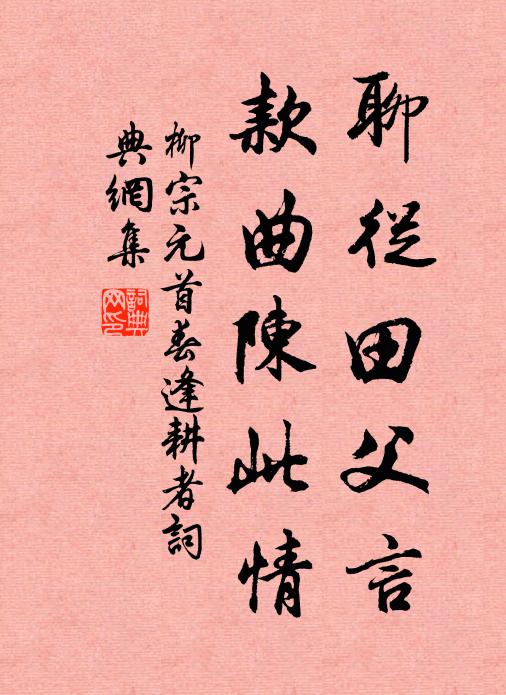 聊從田父言
款曲陳此情
柳宗元首春逢耕者詞
典網集
詞典網印